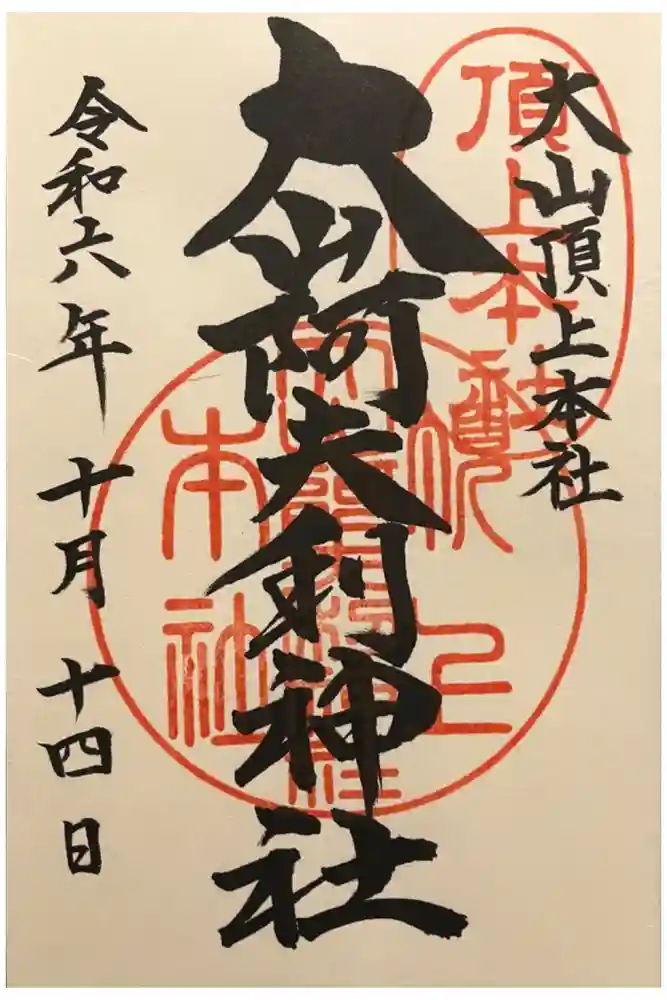 大山頂上本社
頂上本社
大山阿夫利神社
頂上
本社
令和六年 十月 十四日